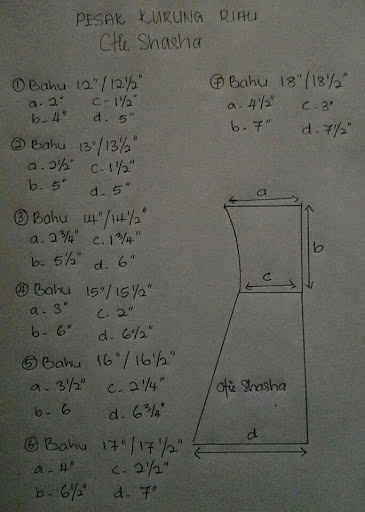 PESAK KURUNG RIAU
Ctie Shasha
① Bahu 12"/12½"
a - 2" c - 1½"
b - 4" d - 5"
② Bahu 13"/13½"
a - 2½" c - 1½"
b - 5" d - 5"
③ Bahu 14"/14½"
a - 2¾" c - 1¾"
b - 5½" d - 6"
④ Bahu 15"/15½"
a - 3" c - 2"
b - 6" d - 6½"
⑤ Bahu 16"/16½"
a - 3½" c - 2¼"
b - 6 d - 6¾"
⑥ Bahu 17"/17½"
a - 4" c - 2½"
b - 6½" d - 7"
⑦ Bahu 18"/18½"
a - 4½" c - 3"
b - 7" d - 7½"
a
b
c
Ctie Shasha
d